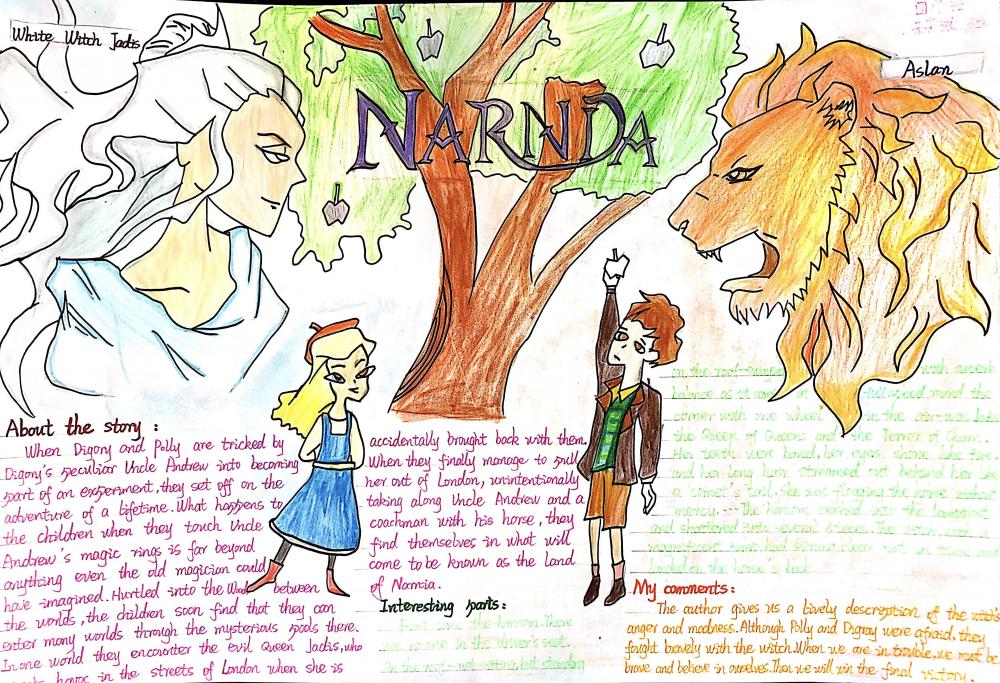 White Witch Jadis
NARNIA
Aslan
About the story :
When Digory and Polly are tricked by
Digory's peculiar Uncle Andrew into becoming
part of an experiment, they set off on the
adventure of a lifetime. What happens to
the children when they touch Uncle
Andrew's magic rings is far beyond
anything even the old magician could
have imagined. Hurtled into the Wood between
the worlds, the children soon find that they can
enter many worlds through the mysterious pools there.
In one world they encounter the evil Queen Jadis, who
havoc in the streets of London when she is
accidentally brought back with them.
When they finally manage to pull
her out of London, unintentionally
taking along Uncle Andrew and a
coachman with his horse, they
find themselves in what will
come to be known as the land
of Narnia.
Interesting parts:
First came the hansom. There
was no one in the driver's seat.
On the roof—not sitting, but standing
on the roof with superb
balance as it came at full speed round the
corner with one wheel in the air was Jadis
the Queen of Queens and the Terror of Charn.
Her teeth were bared, her eyes shone like fire,
and her long hair streamed out behind her like
a comet's tail. She was flogging the horse without
mercy.
landed on the horse's back
My comments:
The author gives us a lively description of the witch's
anger and madness. Although Polly and Digray were afraid, they
fought bravely with the witch. When we are in trouble, we must be
brave and believe in ourselves. Then we will win the final victory.